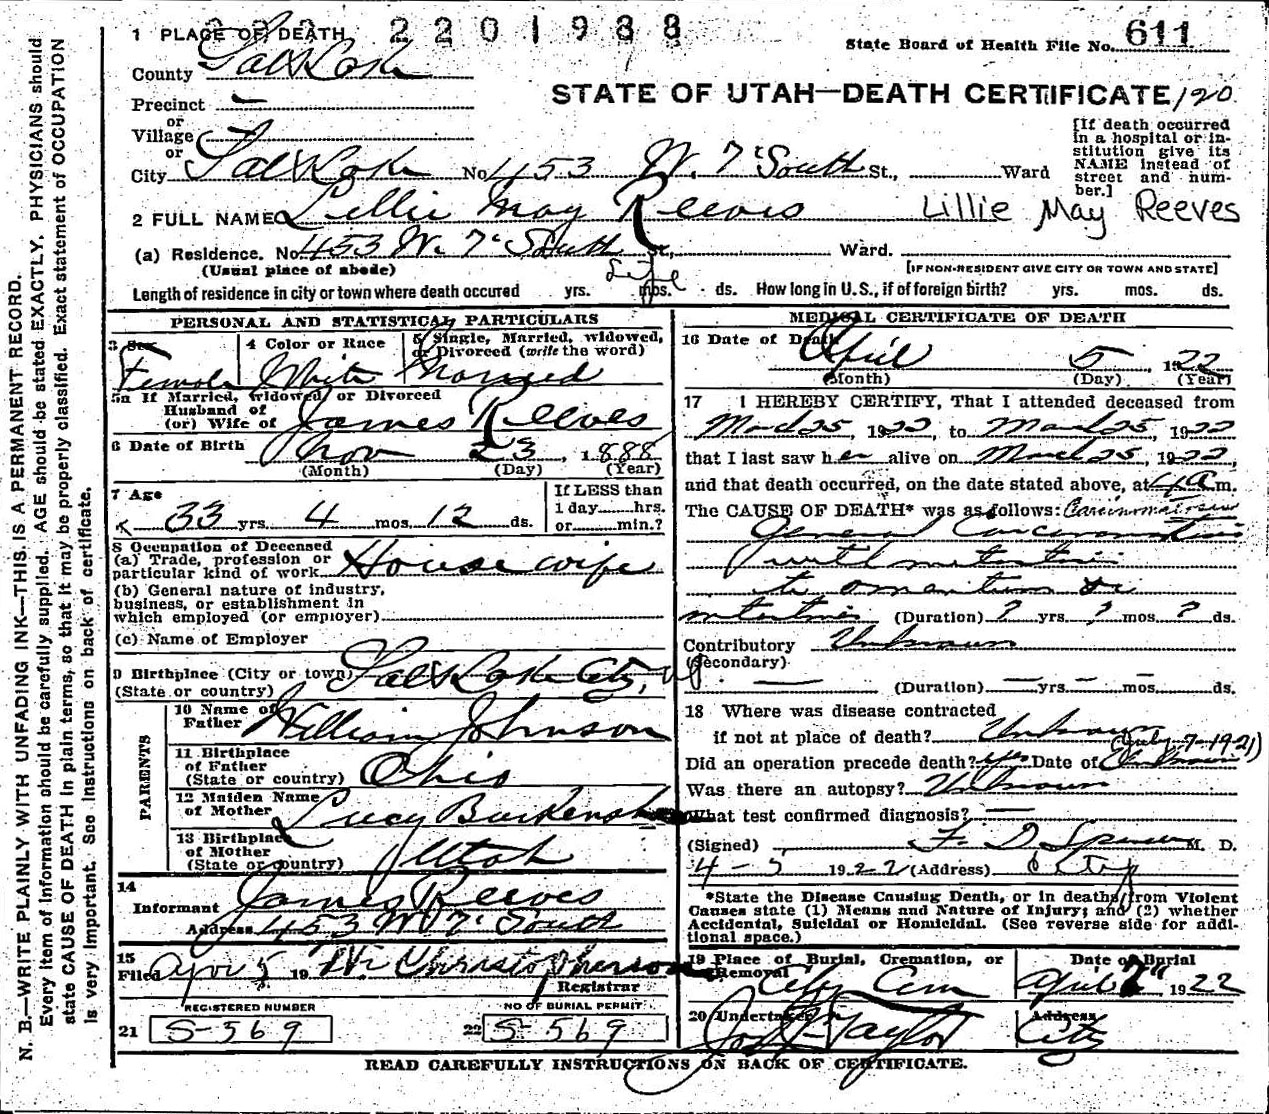 2201988
1 PLACE OF DEATH
State Board of Health File No. 611
County Salt Lake
STATE OF UTAH—DEATH CERTIFICATE 120
Precinct
or
Village
or
City Salt Lake No 453 W. 7 South St., Ward
[If death occurred in a hospital or institution give its NAME instead of street and number.]
2 FULL NAME Lillie May Reeves Lillie May Reeves
(a) Residence. No 453 W. 7 South St., Ward.
(Usual place of abode) [IF NON-RESIDENT GIVE CITY OR TOWN AND STATE]
Life
Length of residence in city or town where death occured yrs. mos. ds. How long in U.S., if of foreign birth? yrs. mos. ds.
PERSONAL AND STATISTICAL PARTICULARS
3 Sex 4 Color or Race 5 Single, Married, widowed,
or Divorced (write the word)
Female White Married
5a If Married, widowed, or Divorced
Husband of
(or) Wife of James Reeves
6 Date of Birth Nov 23, 1888
(Month) (Day) (Year)
7 Age
33 yrs. 4 mos. 12 ds.
If LESS than
1 day hrs.
or min.?
8 Occupation of Deceased
(a) Trade, profession or
particular kind of work House wife
(b) General nature of industry,
business, or establishment in
which employed (or employer)
(c) Name of Employer
9 Birthplace (City or town) Salt Lake City,
(State or country)
PARENTS
10 Name of
Father William Johnson
11 Birthplace
of Father
(State or country) Ohio
12 Maiden Name
of Mother Lucy
13 Birthplace
of Mother
(State or country) Utah
14
Informant James Reeves
Address 453 W 7 South
15
Filed Apr 5 19 Christopherson
Registrar
REGISTERED NUMBER NO OF BURIAL PERMIT
21 S-569 22 S-569
MEDICAL CERTIFICATE OF DEATH
16 Date of Death April 5, 1922
(Month) (Day) (Year)
17 I HEREBY CERTIFY, That I attended deceased from
March 25, 1922, to March 25, 1922
that I last saw her alive on March 25, 1922,
and that death occurred, on the date stated above, at 4 a m.
The CAUSE OF DEATH* was as follows:
General
with
to omentum &
(Duration) ? yrs. ? mos. ? ds.
Contributory Unknown
(Secondary)
(Duration) yrs. mos. ds.
18 Where was disease contracted
if not at place of death? Unknown
(July-7-1921)
Did an operation precede death? yes Date of Unknown
Was there an autopsy? Unknown
What test confirmed diagnosis?
(Signed) M. D.
4-5 1922 (Address) City
*State the Disease Causing Death, or in deaths from Violent
Causes state (1) Means and Nature of Injury; and (2) whether
Accidental, Suicidal or Homicidal. (See reverse side for addi-
tional space.)
19 Place of Burial, Cremation, or
Removal City Cem
Date of Burial
April 7 1922
20 Undertaker Taylor
Address
City
READ CAREFULLY INSTRUCTIONS ON BACK OF CERTIFICATE.
N. B.—WRITE PLAINLY WITH UNFADING INK—THIS IS A PERMANENT RECORD.
Every item of information should be carefully supplied. AGE should be stated EXACTLY. PHYSICIANS should
state CAUSE OF DEATH in plain terms, so that it may be properly classified. Exact statement of OCCUPATION
is very important. See instructions on back of certificate.